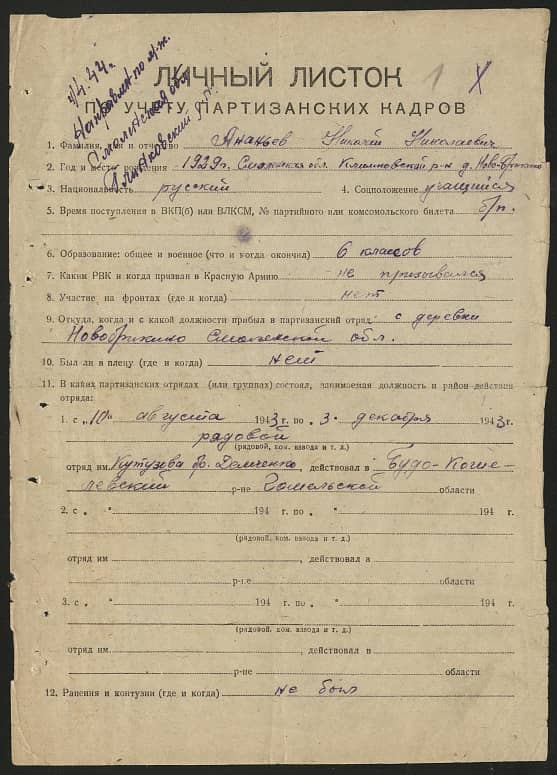 4.44 г.
Направлен по м.ж.
Смоленская обл.
1 X
ЛИЧНЫЙ ЛИСТОК
ПО УЧЕТУ ПАРТИЗАНСКИХ КАДРОВ
1. Фамилия, имя и отчество Ананьев Николай Николаевич
2. Год и место рождения 1929 г. Смоленская обл. р-н д.
3. Национальность русский 4. Соцположение учащийся
5. Время поступления в ВКП(б) или ВЛКСМ, № партийного или комсомольского билета б/п.
6. Образование: общее и военное (что и когда окончил) 6 классов
7. Каким РВК и когда призван в Красную Армию не призывался
8. Участие на фронтах (где и когда) нет
9. Откуда, когда и с какой должности прибыл в партизанский отряд с деревни
Смоленской обл.
10. Был ли в плену (где и когда) нет
11. В каких партизанских отрядах (или группах) состоял, занимаемая должность и район действия
отряда:
1. с „10" августа 1943 г. по „3" декабря 1943 г.
рядовой
(рядовой, ком. взвода и т. д.)
отряд им. Кутузова бр. Демченко, действовал в Будо-Коше-
левский р-не Гомельской области
2. с „ " 194 г. по „ " 194 г.
(рядовой, ком. взвода и т. д.)
отряд им , действовал в
р-не области
3. с „ " 194 г. по „ " 194 г.
(рядовой, ком. взвода и т. д.)
отряд им. , действовал в
р-не области
12. Ранения и контузии (где и когда) не был